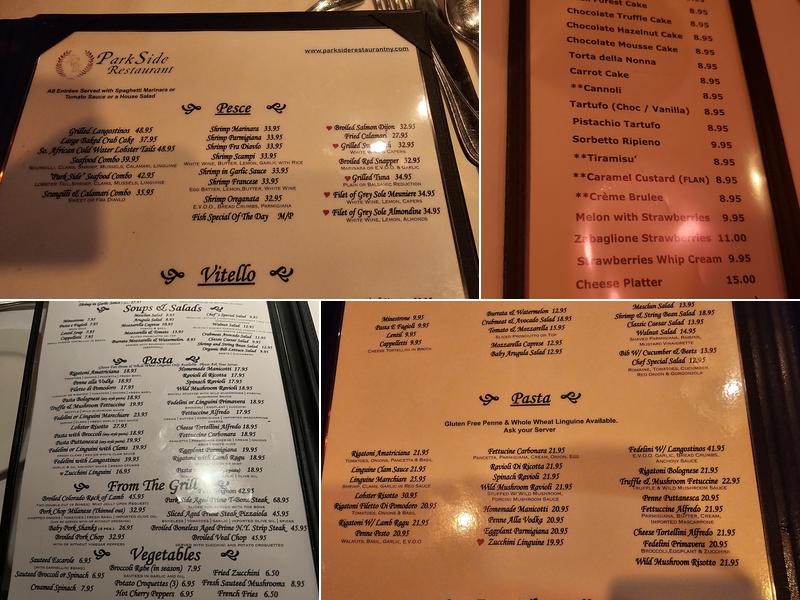 ParkSide
Restaurant
www.parksiderestaurantny.com
All Entrées Served with Spaghetti Marinara or
Tomato Sauce or a House Salad
Pesce
Grilled Langostinos 48.95
Large Baked Crab Cake 37.95
So. African Cold Water Lobster Tails 48.95
Seafood Combo 39.95
Mussels, Calamari, Linguine
"Park Side" Seafood Combo 42.95
Lobster Tail, Shrimp, Clams, Mussels, Linguine
Scungilli & Calamari Combo 35.95
Sweet or Fra Diavlo
Shrimp Marinara 33.95
Shrimp Parmigiana 33.95
Shrimp Fra Diavlo 33.95
Shrimp Scampi 33.95
White Wine, Butter, Lemon, Garlic with Rice
Shrimp in Garlic Sauce 33.95
Shrimp Francese 33.95
Egg Batter, Lemon, Butter, White Wine
Shrimp Oreganata 32.95
E.V.O.O., Bread Crumbs, Parmigiana
Fish Special Of The Day M/P
Broiled Salmon Dijon 32.95
Fried Calamari 27.95
Grilled
White Wine, Capers
Broiled Red Snapper 32.95
Marinara or E.V.O.O. & Garlic
Grilled Tuna 34.95
Plain or Balsamic Reduction
Filet of Grey Sole Meuniere 34.95
White Wine, Lemon, Capers
Filet of Grey Sole Almondine 34.95
White Wine, Lemon, Almonds
Vitello
Forest Cake 8.95
Chocolate Truffle Cake 8.95
Chocolate Hazelnut Cake 8.95
Chocolate Mousse Cake 8.95
Torta della Nonna 8.95
Carrot Cake 8.95
**Cannoli 8.95
Tartufo (Choc / Vanilla) 8.95
Pistachio Tartufo 8.95
Sorbetto Ripieno 9.95
**Tiramisu' 8.95
**Caramel Custard (FLAN) 8.95
**Crème Brulee 8.95
Melon with Strawberries 9.95
Zabaglione Strawberries 11.00
Strawberries Whip Cream 9.95
Cheese Platter 15.00
Soups & Salads
Minestrone 7.95
Pasta e Fagioli 7.95
Lentil Soup 7.95
Cappelletti 7.95
Mesclun Salad
Arugula Salad
Mozzarella Caprese
Mozzarella & Tomato
Burrata Mozzarella & Watermelon
Chef's Special Salad
Walnut Salad
Crabmeat Avocado Salad
Classic Caesar Salad
Shrimp and String Bean Salad
Organic Bib Lettuce Salad
Pasta
Rigatoni Amatriciana 18.95
Penne alla Vodka 18.95
Filetto di Pomodoro 17.95
Rigatoni Bolognese 19.95
Truffle & Mushroom Fettuccine 19.95
Fedelini or Linguini Marechiare 23.95
Lobster Risotto 27.95
Pasta with Broccoli
Pasta Puttanesca
Fedelini or Linguini with Clams 19.95
Fedelini with Langostinos 39.95
Zucchini Linguini 16.95
Homemade Manicotti 17.95
Ravioli di Ricotta 17.95
Spinach Ravioli 17.95
Wild Mushroom Ravioli 18.95
Fedelini or Linguini Primavera 18.95
Fettuccine Alfredo 17.95
Cheese Tortellini Alfredo 18.95
Fettuccine Carbonara 18.95
Eggplant Parmigiana 19.95
Rigatoni with Lamb Ragu 18.95
From The Grill
Broiled Colorado Rack of Lamb 45.95
Pork Chop Milanese (Thinned out) 32.95
Baby Pork Shanks 26.95
Broiled Pork Chop 32.95
Prime T-Bone Steak 68.95
Sliced Aged Prime Steak Pizzaiola 45.95
Broiled Boneless Aged Prime N.Y. Strip Steak 45.95
Broiled Veal Chop 45.95
Vegetables
Sauteed Escarole 6.95
Sauteed Broccoli or Spinach 6.95
Creamed Spinach 7.95
Broccoli Rabe (in season) 7.95
Sauteed in Garlic and Oil
Potato Croquettes (3) 6.95
Hot Cherry Peppers 6.95
Fried Zucchini 6.50
Fresh Sauteed Mushrooms 8.95
French Fries 6.50
Minestrone 9.95
Pasta & Fagioli 9.95
Lentil 9.95
Cappelletti 9.95
Cheese Tortellini in Broth
Burrata & Watermelon 12.95
Crabmeat & Avocado Salad 18.95
Tomato & Mozzarella 15.95
Sliced Prosciutto on Top
Mozzarella Caprese 12.95
Baby Arugula Salad 12.95
Mesclun Salad 13.95
Shrimp & String Bean Salad 18.95
Classic Caesar Salad 13.95
Walnut Salad 14.95
Shaved Parmigiana, Raisins,
Mustard Vinaigrette
Bib W/ Cucumber & Beets 13.95
Chef Special Salad 12.95
Romaine, Tomatoes, Cucumber,
Red Onion & Gorgonzola
Pasta
Gluten Free Penne & Whole Wheat Linguine Available.
Ask your Server
Rigatoni Amatriciana 21.95
Tomatoes, Onions, Pancetta & Basil
Linguine Clam Sauce 21.95
Linguine Marechiare 25.95
Shrimp, Clams, Garlic in Red Sauce
Lobster Risotto 30.95
Rigatoni Filetto Di Pomodoro 20.95
Tomatoes, Onions & Basil
Rigatoni W/ Lamb Ragu 21.95
Penne Pesto 20.95
Walnuts, Basil, Garlic, E.V.O.O
Fettucine Carbonara 21.95
Pancetta, Parmigiana, Cream, Onion, Egg
Ravioli Di Ricotta 21.95
Spinach Ravioli 21.95
Wild Mushroom Ravioli 21.95
Stuffed W/ Wild Mushroom,
Porcini Mushroom Sauce
Homemade Manicotti 20.95
Penne Alla Vodka 20.95
Eggplant Parmigiana 20.95
Zucchini Linguine 19.95
Fedelini W/ Langostinos 41.95
E.V.O.O, Garlic, Bread Crumb,
Anchovy Sauce
Rigatoni Bolognese 21.95
Truffle & Mushroom Fettuccine 22.95
Truffle & Wild Mushroom Sauce
Penne Puttanesca 20.95
Fettuccine Alfredo 21.95
Parmigiana, Butter, Cream,
Imported Mascarpone
Cheese Tortellini Alfredo 21.95
Fedelini Primavera 20.95
Broccoli, Eggplant & Zucchini
Wild Mushroom Risotto 21.95